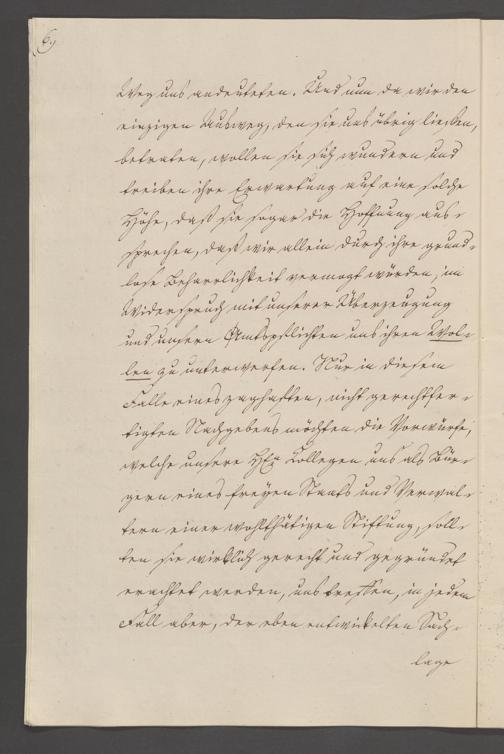 6.)
Weg uns andeuteten. Und nun da wir den
einzigen Ausweg, den sie uns übrig ließen,
betraten, wollen sie sich wundern und
treiben ihre Erwartung auf eine solche
Höhe, daß sie sogar die Hoffnung aus-
sprechen, daß wir allein durch ihre grund-
lose Beharrlichkeit vermogt würden, im
Widerspruch mit unserer Überzeugung
und unsern Amtspflichten uns ihren Wol-
len zu unterwerfen. Nur in diesem
Falle eines zaghaften, nicht gerechtfer-
tigten Nachgebens möchten die Vorwürfe,
welche unsere Collegen uns als Bür-
gern eines freyen Staats und Verwal-
tern einer wohlthätigen Stiftung, soll-
ten sie wirklich gerecht und gegründet
erachtet werden, uns treffen, in jedem
Fall aber, der eben entwickelten Sach-
lage